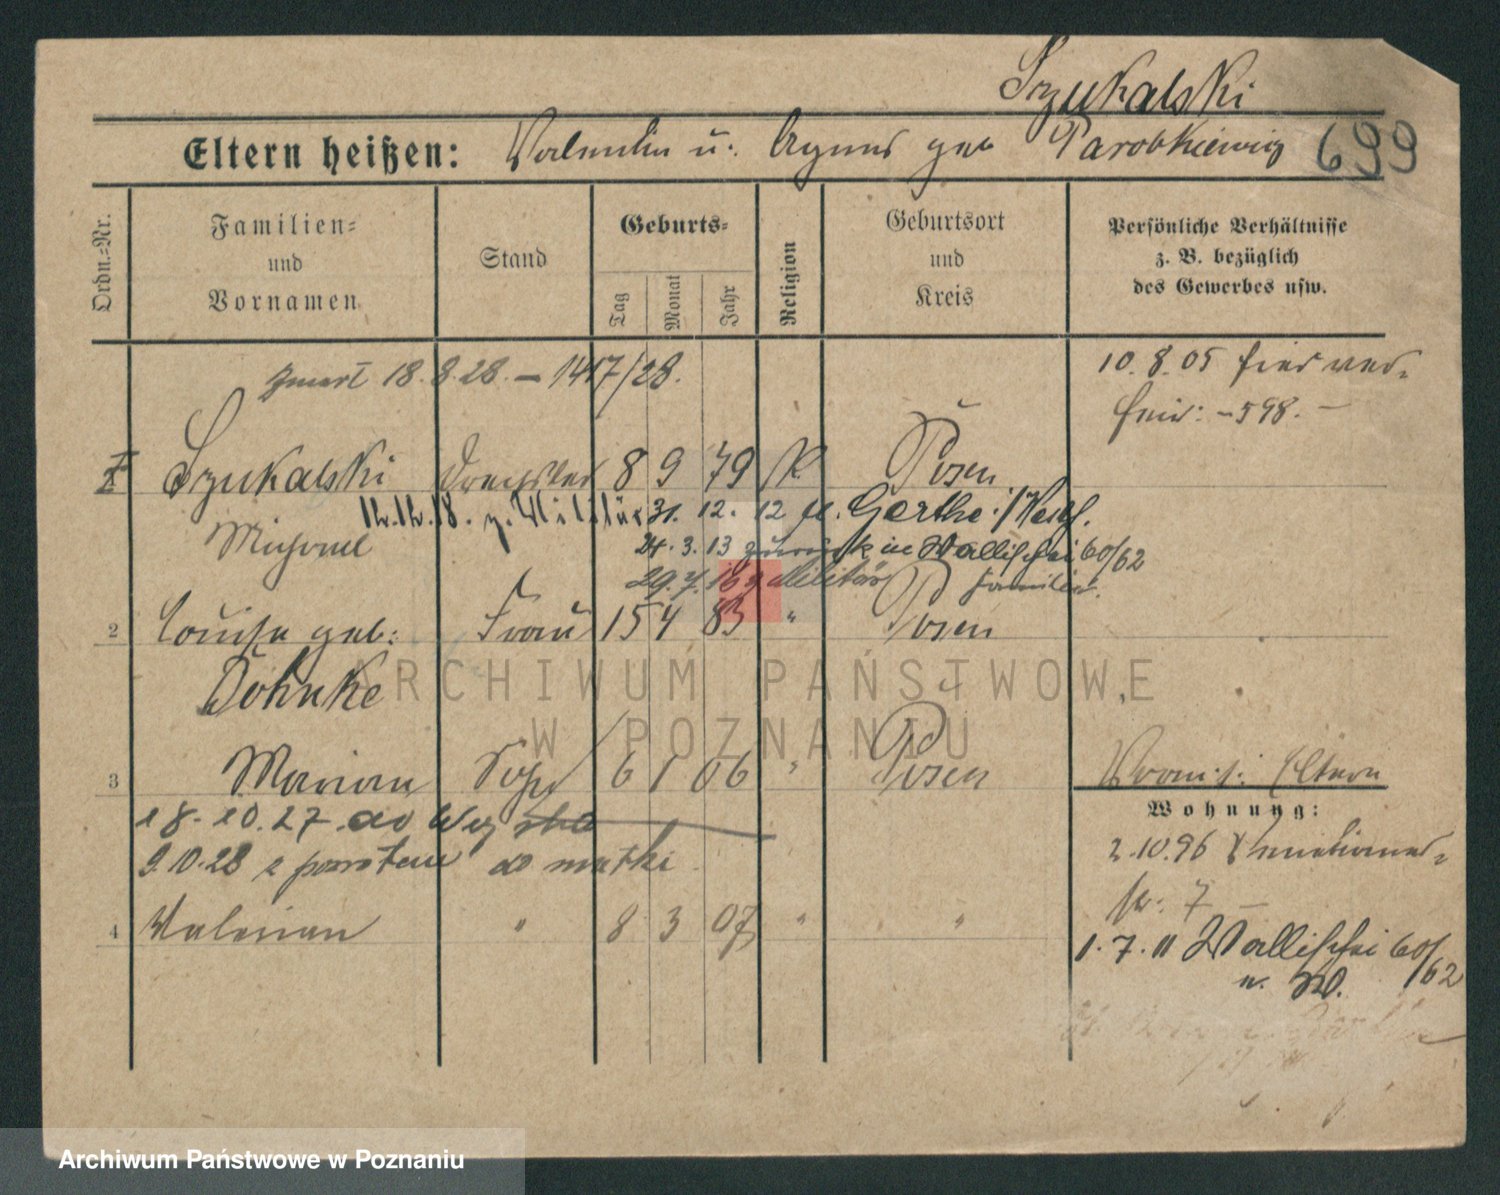 Szukalski
Eltern heißen: Valentin u. Agnes geb Parobkiewicz 699
Ordn.-Nr.
Familien-
und
Vornamen
Stand
Geburts-
Tag
Monat
Jahr
Religion
Geburtsort
und
Kreis
Persönliche Verhältnisse
z. B. bezüglich
des Gewerbes usw.
zmarł 18.8.28. – 1417/28.
10.8.05 hier ver-
heir: – 598. –
Szukalski Drechsler 8 9 79 K. Posen
18. z. Militär 31. 12. 12 Gerthe /Westf.
Michael
24. 3. 13 zurück in Wallischei 60/62
29.7. z Militär Familie.
2 Louise geb: Frau 15 4 83 " Posen
Döhnke
3 Marian Sohn 6 1 06 " Posen
18. 10. 27 do
9.10.28 z powrotem do matki
4 Valerian " 8 3 07 " "
Eltern
Wohnung:
2.10.96
str. 7 –
1. 7. 11 Wallischei 60/
62
u. W.
ARCHIWUM PAŃSTWOWE
W POZNANIU
Archiwum Państwowe w Poznaniu